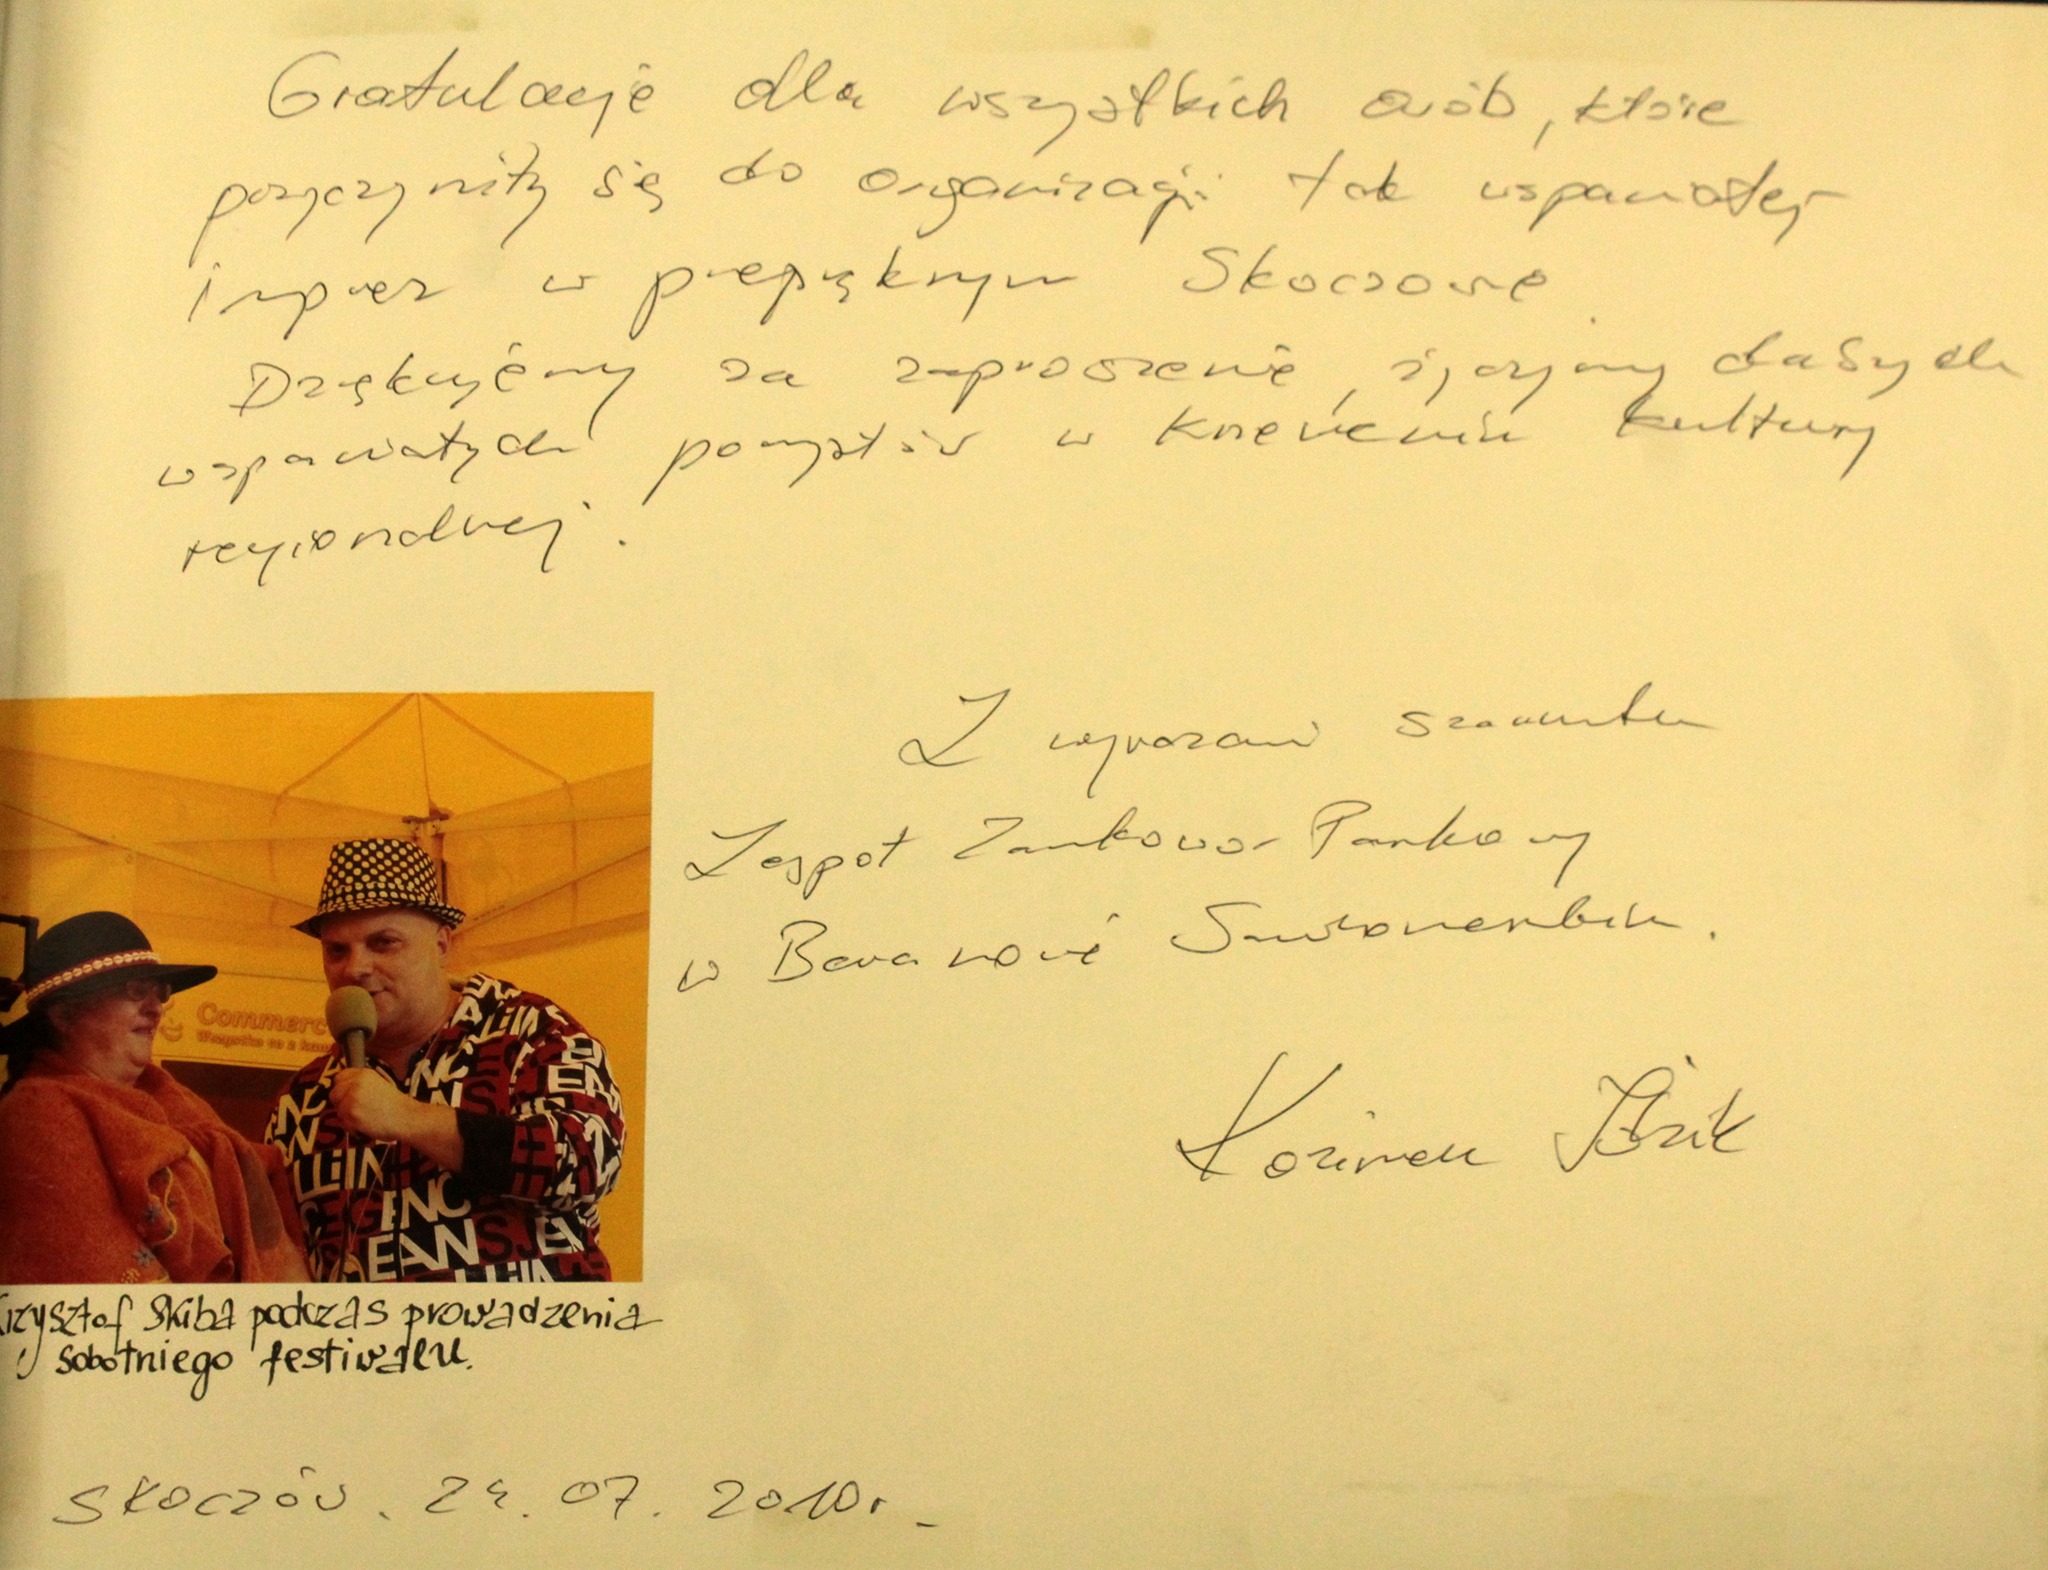 Gratulacje dla wszystkich osób, które
przyczyniły się do organizacji tak wspaniałej
imprez w przepięknym Skoczowie.
Dziękujemy za zaproszenie, życzymy dalszych
wspaniałych pomysłów w krzewieniu kultury
regionalnej.
Z wyrazami szacunku
Zespół Zamkowo-Parkowy
w Baranowie Sandomierskim.
Commerc
Wszystko co z
ENC
EAN
Krzysztof Skiba podczas prowadzenia
sobotniego festiwalu.
SKOCZÓW. 24.07.2010r.